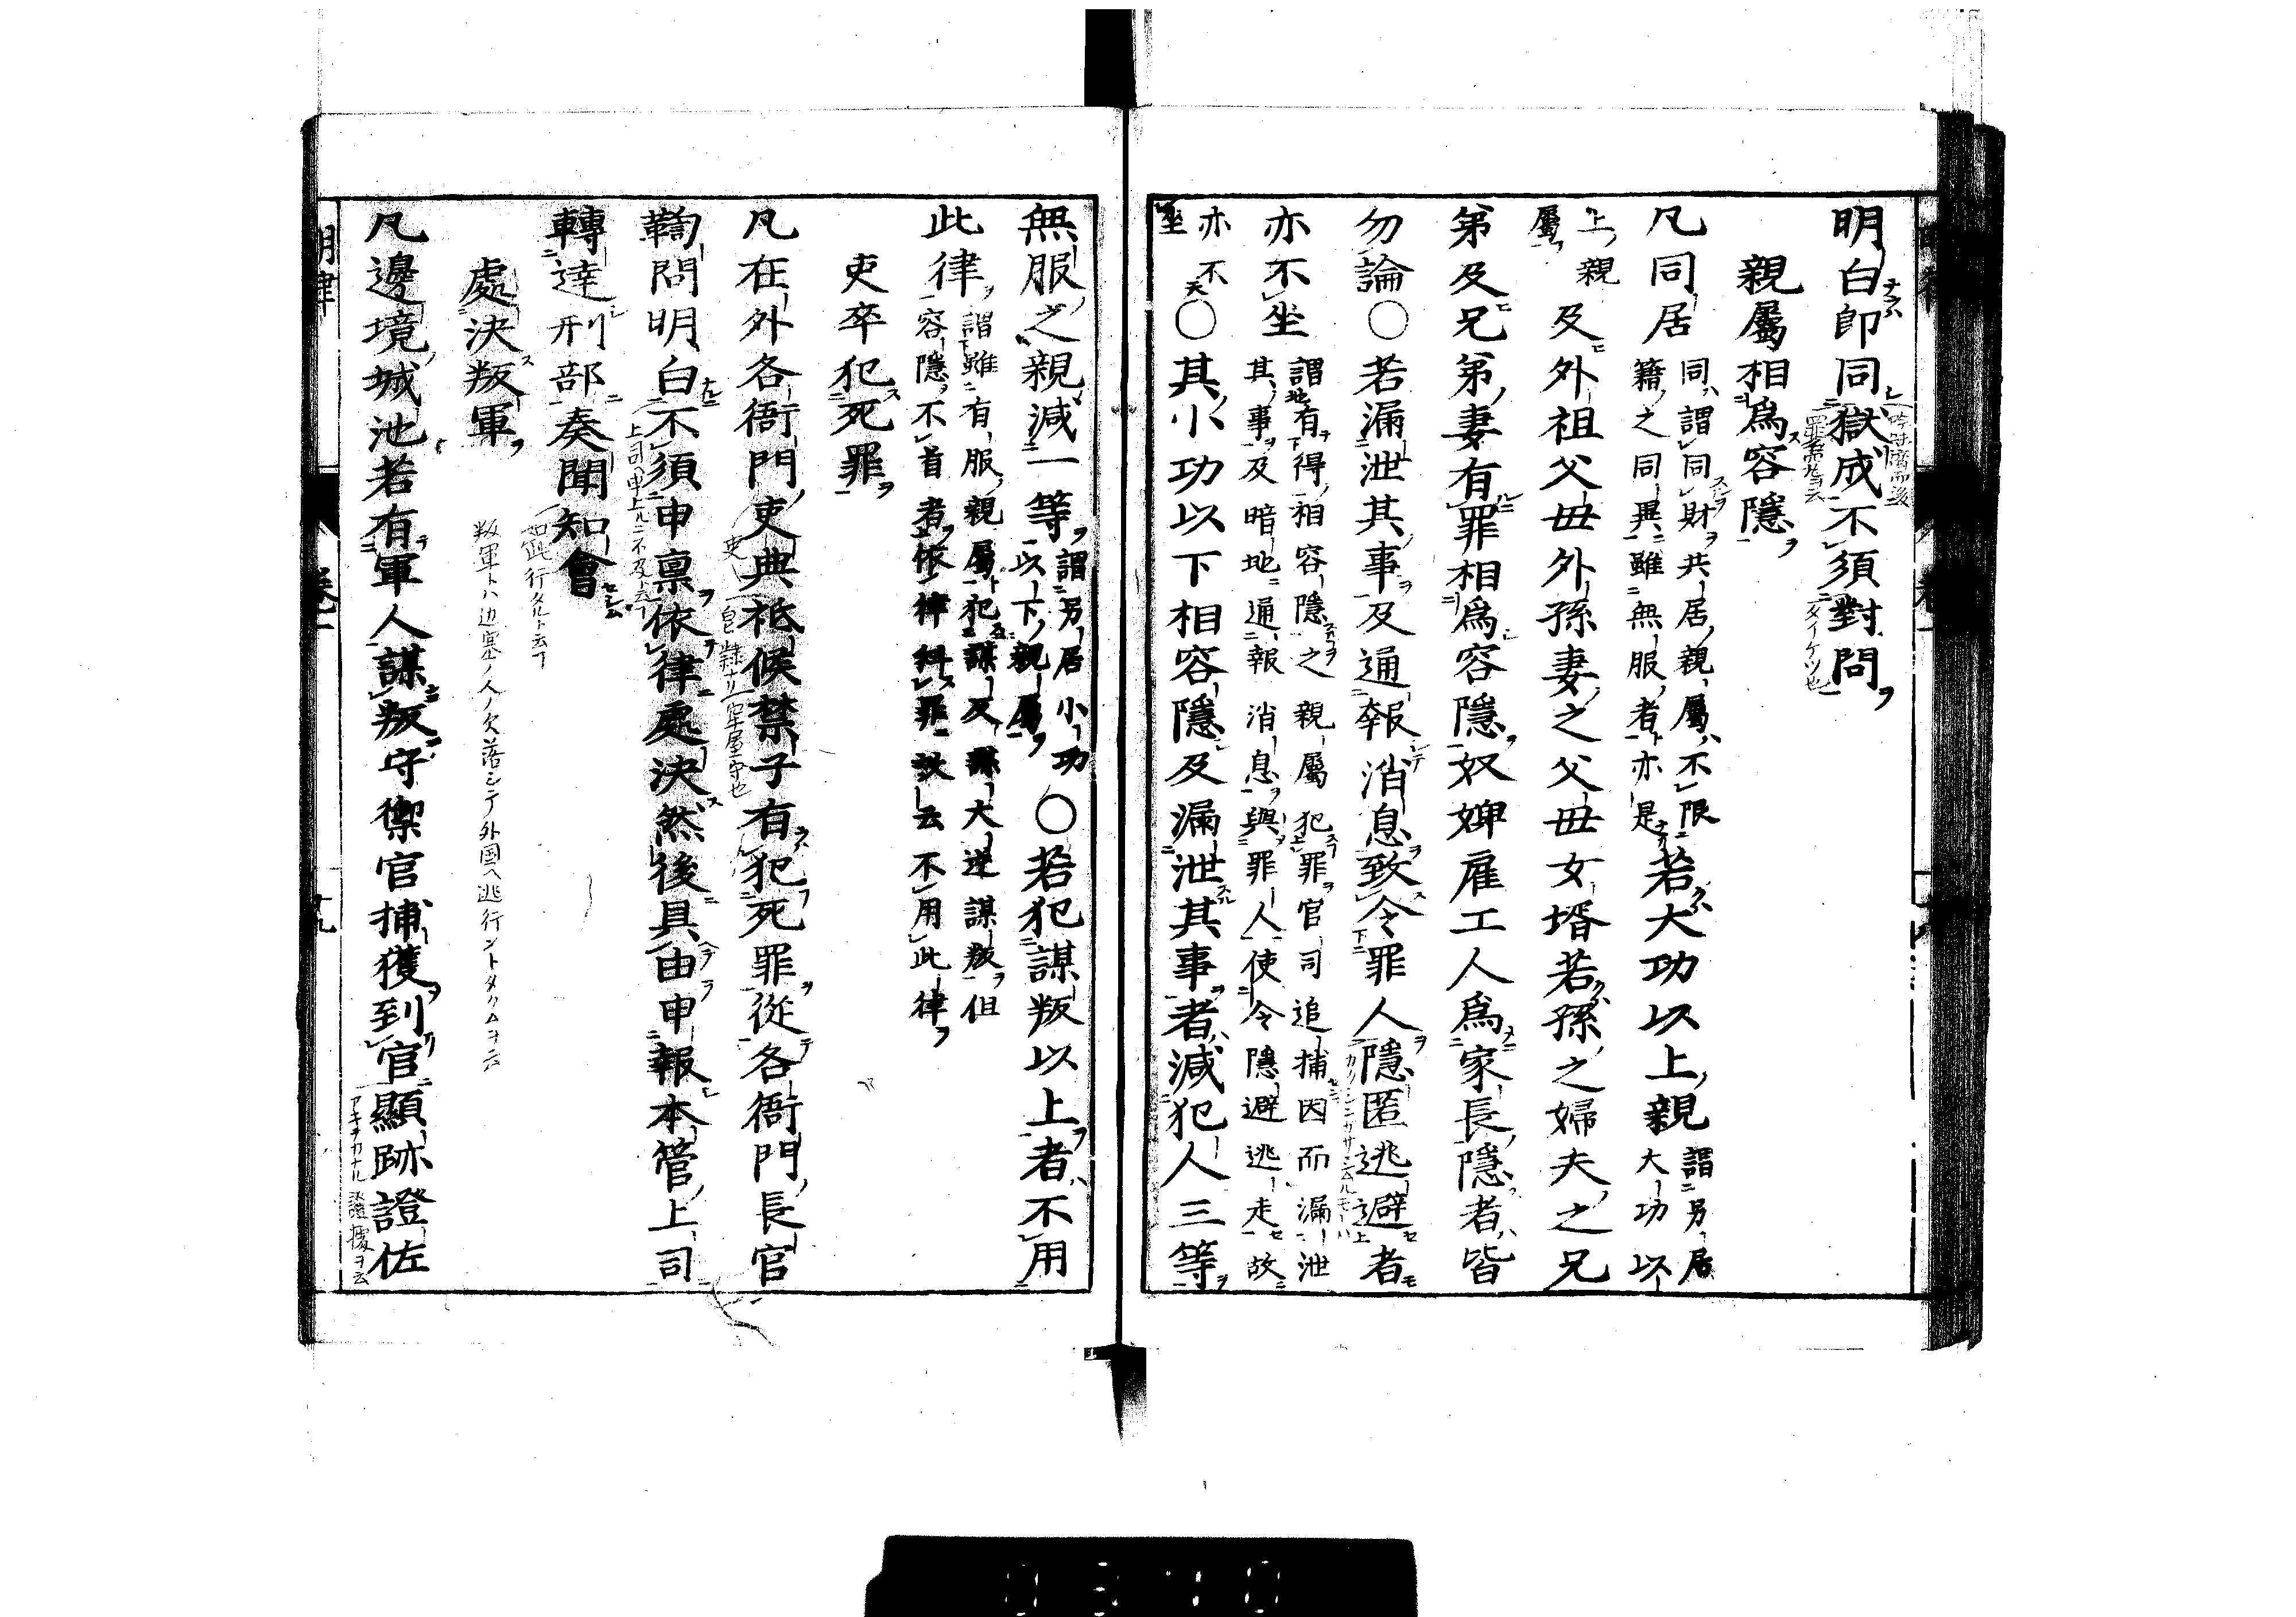 明白卽同獄成不須對問
親屬相爲容隱
凡同居
同謂同財共居親屬不限
籍之同異雖無服者亦是
若大功以上親
謂另居
大功以
上親
屬
及外祖父母外孫妻之父母女壻若孫之婦夫之兄
弟及兄弟妻有罪相爲容隱奴婢雇工人爲家長隱者皆
勿論〇若漏泄其事及通報消息致令罪人隱匿逃避者
亦不坐
謂有得相容隱之親屬犯罪官司追捕因而漏泄
其事及暗地通報消息與罪人使令隱避逃走故
亦不
坐
〇其小功以下相容隱及漏泄其事者減犯人三等
無服之親減一等
謂另居小功
以下親屬
〇若犯謀叛以上者不用
此律
謂雖有服親屬犯謀反謀大逆謀叛但
容隱不首者依律科罪故云不用此律
吏卒犯死罪
凡在外各衙門吏典祗候禁子有犯死罪從各衙門長官
鞫問明白不須申稟依律處決然後具由申報本管上司
轉達刑部奏聞知會
處決叛軍
叛軍トハ边塞ノ人ノ欠落シテ外国へ逃行ントタクムヲ云
凡邊境城池若有軍人謀叛守禦官捕獲到官顯跡證佐
明律
卷一
十九